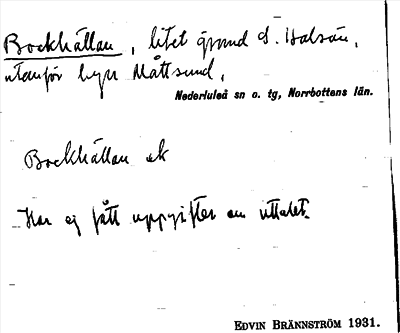 Bockhällan, litet grund S. Halsön,
utanför byn Måttsund,
Nederluleå sn o. tg, Norrbottens län.
Bockhällan ek
Har ej fått uppgifter om uttalet.
EDVIN BRÄNNSTRÖM 1931.